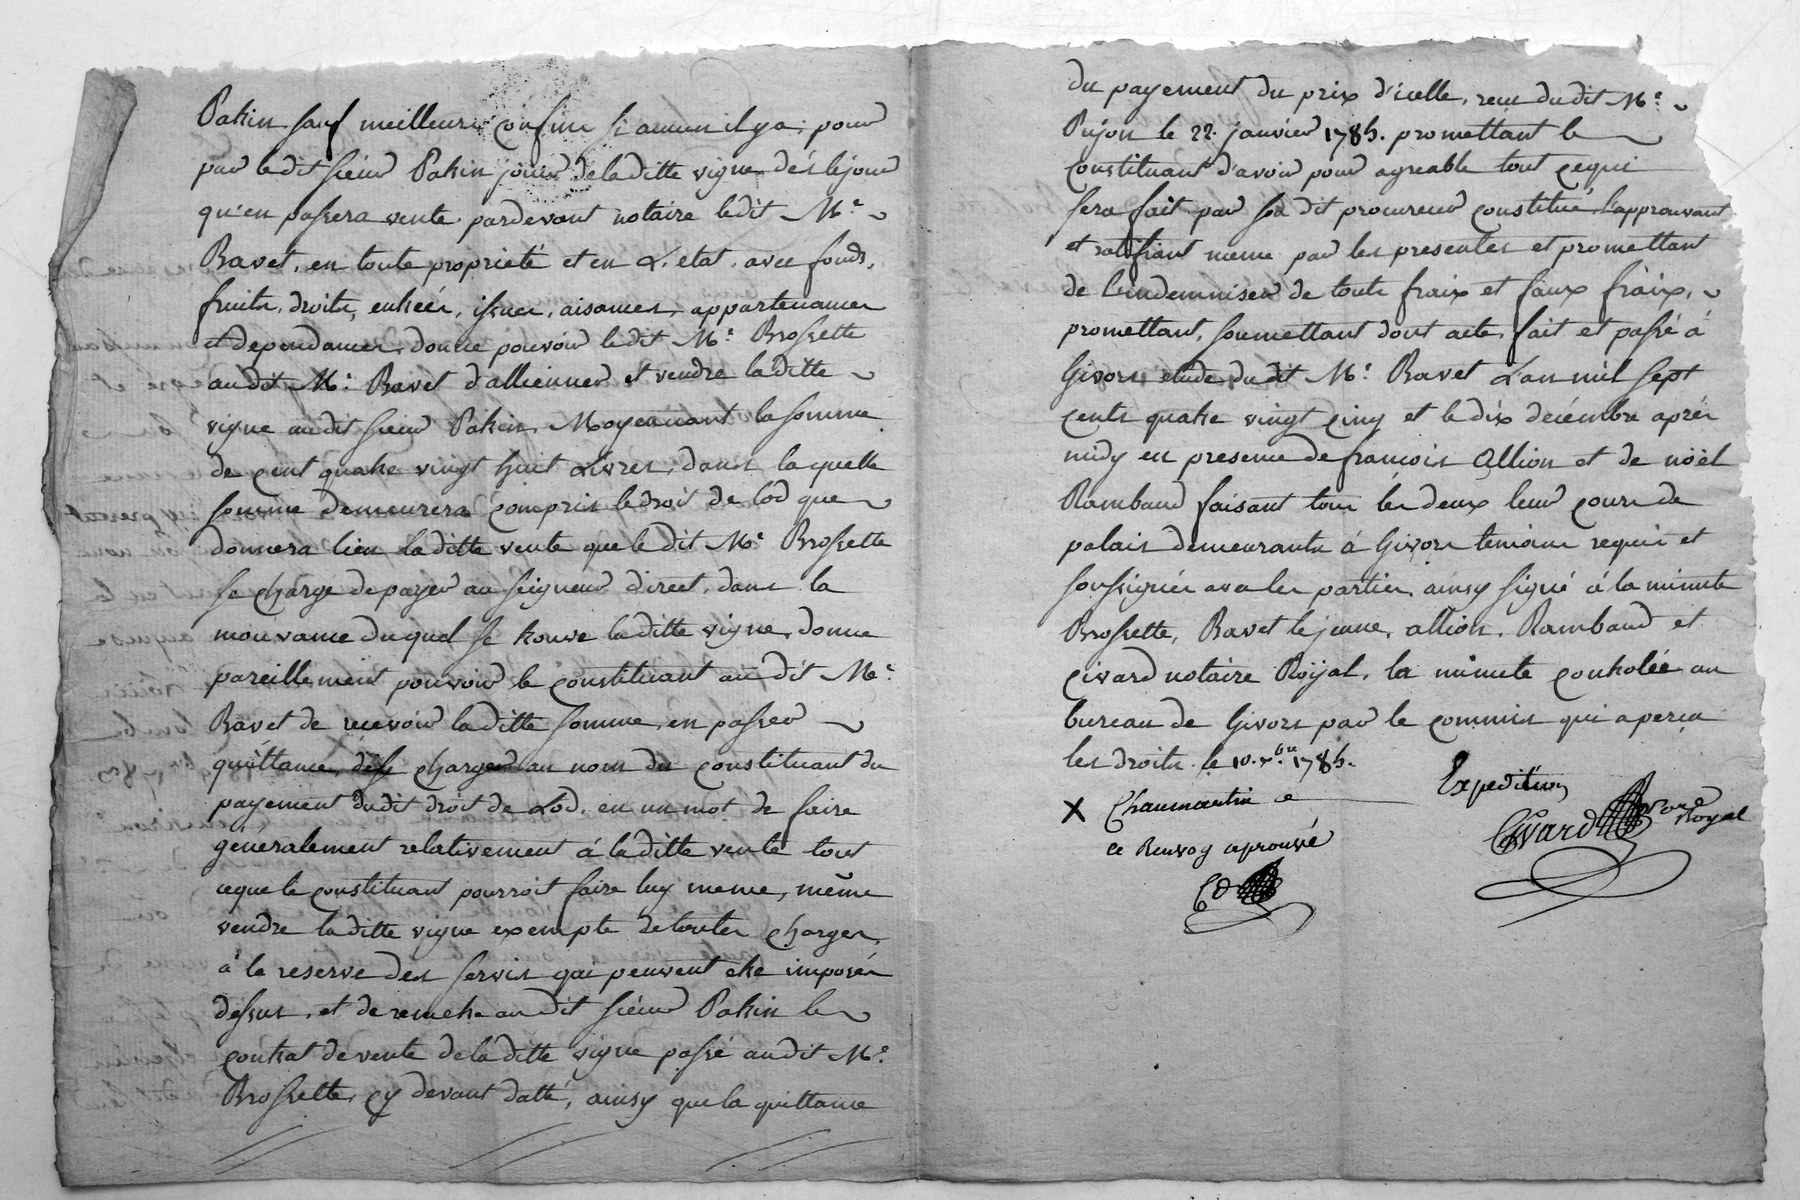 Patin sauf meilleurs confins si aucun il y a, pour
par ledit sieur Patin jouir de la ditte vigne dés le jour
qu'en passera vente pardevant notaire ledit Me.
Ravet, en toute propriété et en L'etat, avec fonds,
fruits, droits, entrées, issues, aisances, appartenances
et dependances, donne pouvoir ledit Me. Brossette
audit Me. Ravet d'allienner et vendre la ditte
vigne audit sieur Patin, Moyennant la somme
de cent quatre vingt huit Livres, dans laquelle
somme demeurera compris le droit de lod que
donnera lieu la ditte vente que ledit Me. Brossette
se charge de payer au seigneur direct, dans la
mouvance duquel se trouve la ditte vigne, donne
pareillement pouvoir le constituant audit Me.
Ravet de recevoir la ditte somme, en passer
quittance, se charger au nom du constituant du
payement dudit droit de Lod, en un mot de faire
generalement relativement á la ditte vente tout
ceque le constituant pourroit faire luy meme, même
vendre la ditte vigne exempte de toutes charges,
à la reserve des servis qui peuvent etre imposés
dessus, et de remetre audit sieur Patin le
contrat de vente de la ditte vigne passé audit Me.
Brossette, cy devant datté, ainsy que la quittance
du payement du prix d'icelle, reçu dudit Me.
Pujon le 22. janvier 1785. promettant le
constituant d'avoir pour agreable tout cequi
sera fait par son dit procureur constitué l'approuvant
et ratifiant meme par les presentes et promettant
de l'indemniser de touts fraix et faux fraix,
promettant, soumettant dont acte, fait et passé á
Givors, etude dudit Me. Ravet L'an mil sept
cents quatre vingt cinq et le dix decembre aprés
midy en presence de francois Allion et de noël
Rambaud faisant tous les deux leur cours de
palais demeurants á Givors temoins requis et
soussignés avec les parties, ainsy signé á la minute
Brossette, Ravet le jeune, allion, Rambaud et
Civard notaire Röyal, la minute controlée au
bureau de Givors par le commis qui a perçu
les droits le 10. xbre. 1785.
X Chaumartin ce
ce Renvoy aprouvé
Expedition
Civard
Royal